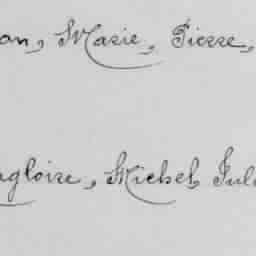 an, Marie, Pierre,
agloire, Michel Jul